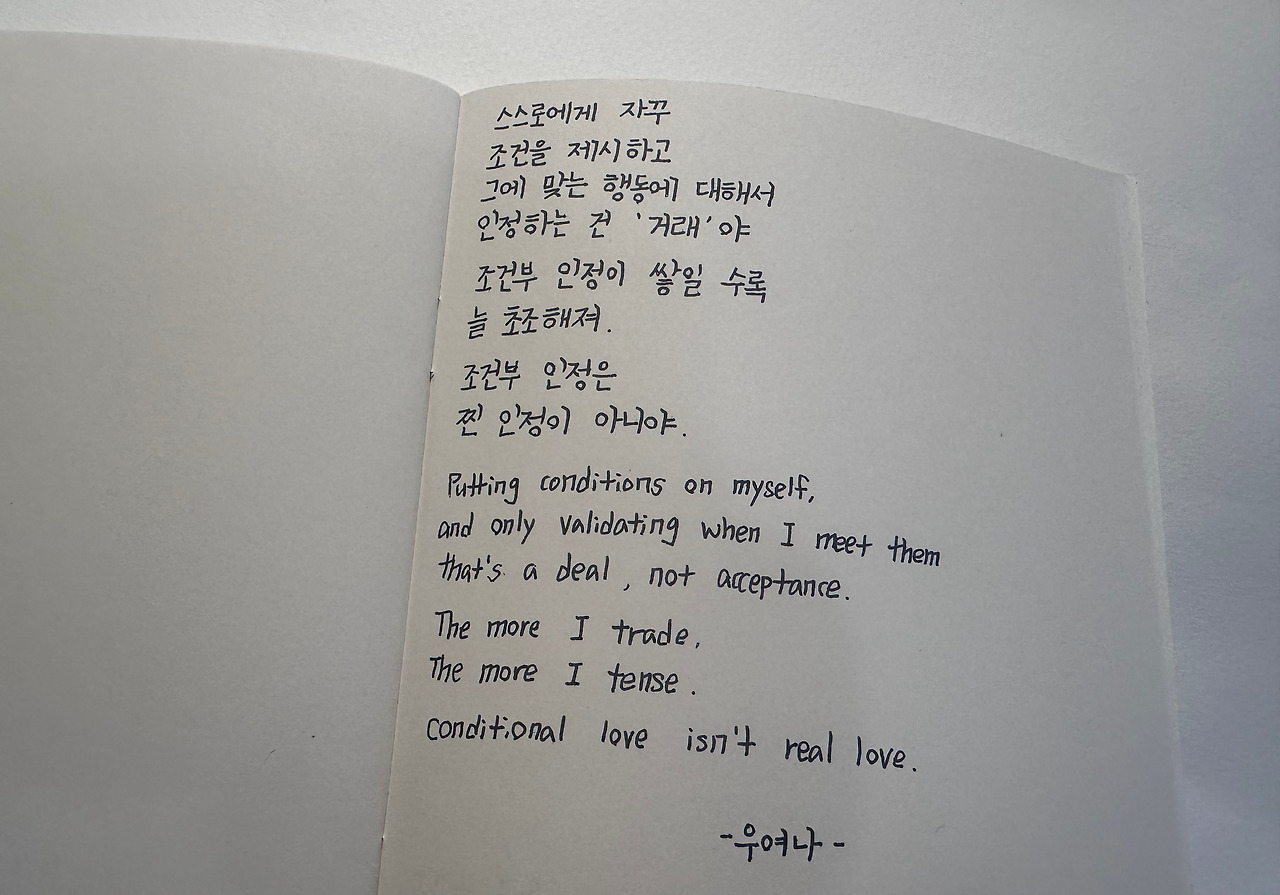 스스로에게 자꾸
조건을 제시하고
그에 맞는 행동에 대해서
인정하는 건 '거래'야
조건부 인정이 쌓일 수록
늘 초조해져.
조건부 인정은
찐 인정이 아니야.
Putting conditions on myself,
and only validating when I meet them
that's a deal, not acceptance.
The more I trade,
The more I tense.
Conditional love isn't real love.
-우여나-